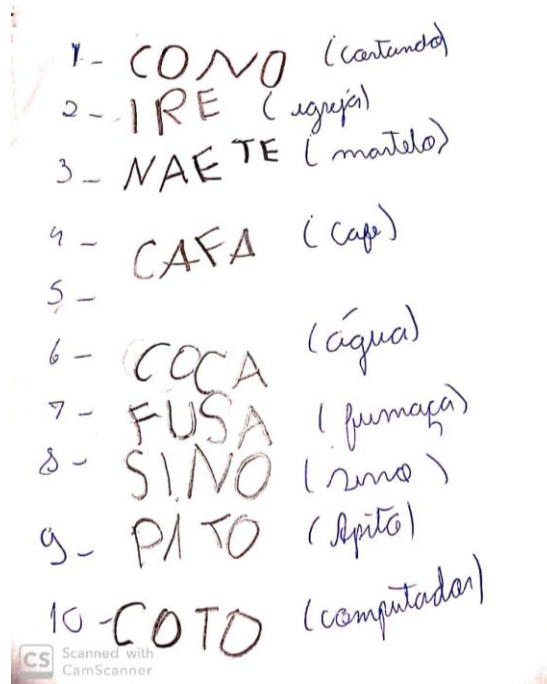 1- CONO (cantando)
2- IRE (igreja)
3- NAETE (martelo)
4- CAFA (cafe)
5-
6- COCA (água)
7- FUSA (fumaça)
8- SINO (sino)
9- PITO (Apito)
10- COTO (computador)
CS Scanned with CamScanner